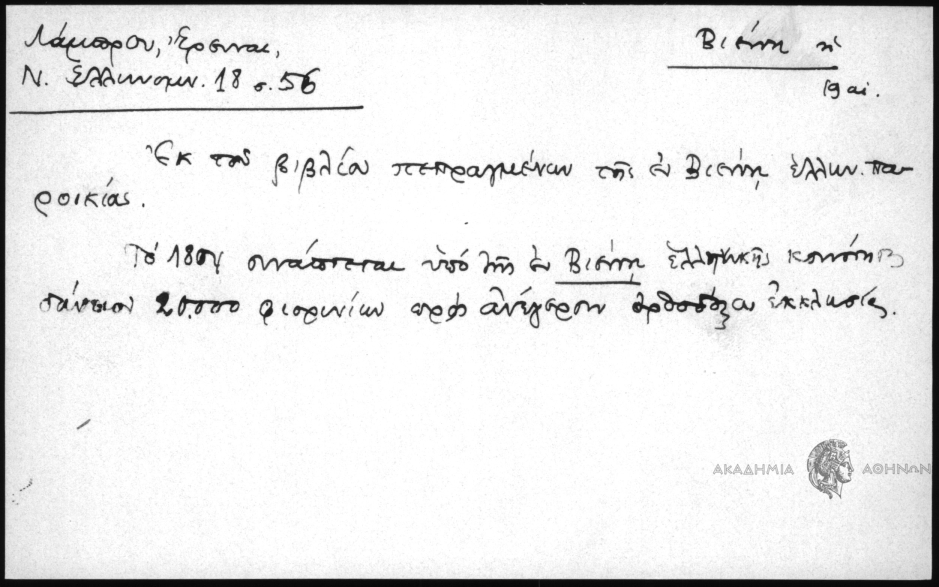 Λάμπρου, Ἔρευναι,
Ν. Ἑλληνομν. 18 σ. 56
Βιέννη ἡ
19 αἰ.
Ἐκ τοῦ βιβλίου πεπραγμένων τῆς ἐν Βιέννῃ ἑλλην. πα-
ροικίας.
Τὸ 18 συνάπτεται ὑπὸ τῆς ἐν Βιέννῃ ἑλληνικῆς κοινότητος
δάνειον 20.000 φιορινίων πρὸς ἀνέγερσιν ὀρθοδόξου ἐκκλησίας.
ΑΚΑΔΗΜΙΑ ΑΘΗΝΩΝ